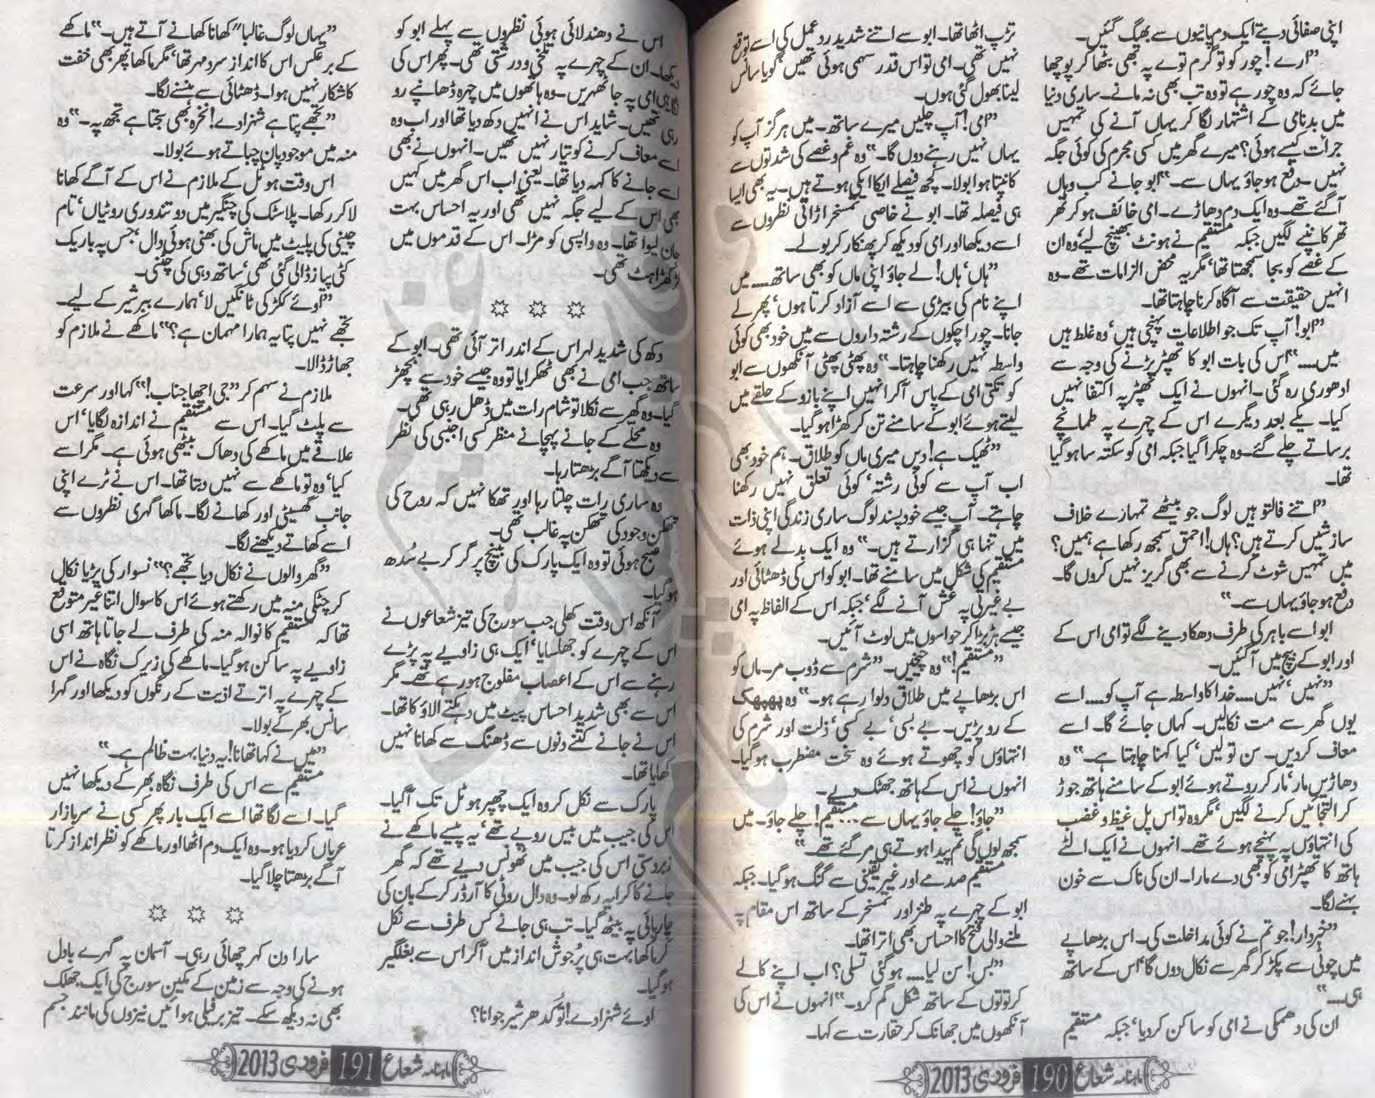 اپنی صفائی دیتے ایک دم پانیوں سے بھیگ گئیں۔
”ارے! چور کو تو گرم توے پہ بھی بٹھا کر پوچھا
جائے کہ وہ چور ہے تو وہ تب بھی نہ مانے۔ ساری دنیا
میں بدنامی کے اشتہار لگا کر یہاں آنے کی تمہیں
جرات کیسے ہوئی؟ میرے گھر میں کسی مجرم کی کوئی جگہ
نہیں۔ دفع ہو جاؤ یہاں سے۔“ ابو جانے کب وہاں
آگئے تھے۔ وہ ایک دم دھاڑے۔ امی خائف ہو کر تھر
تھر کانپنے لگیں جبکہ مستقیم نے ہونٹ بھینچ لیے‘ وہ ان
کے غصے کو بجا سمجھتا تھا‘ مگر یہ محض الزامات تھے۔ وہ
انہیں حقیقت سے آگاہ کرنا چاہتا تھا۔
”ابو! آپ تک جو اطلاعات پہنچی ہیں‘ وہ غلط ہیں
میں.....“ اس کی بات ابو کا تھپڑ پڑنے کی وجہ سے
ادھوری رہ گئی۔ انہوں نے ایک تھپڑ پہ اکتفا نہیں
کیا۔ یکے بعد دیگرے اس کے چہرے پہ طمانچے
برساتے چلے گئے۔ وہ چکرا گیا جبکہ امی کو سکتہ سا ہو گیا
تھا۔
”اتنے فالتو ہیں لوگ جو بیٹھے تمہارے خلاف
سازشیں کرتے ہیں؟ ہاں! احمق سمجھ رکھا ہے ہمیں؟
میں تمہیں شوٹ کرنے سے بھی گریز نہیں کروں گا۔
دفع ہو جاؤ یہاں سے۔“
ابو اسے باہر کی طرف دھکا دینے لگے تو امی اس کے
اور ابو کے بیچ میں آگئیں۔
”نہیں‘ نہیں..... خدا کا واسطہ ہے آپ کو..... اسے
یوں گھر سے مت نکالیں۔ کہاں جائے گا۔ اسے
معاف کر دیں۔ سن تو لیں‘ کیا کہنا چاہتا ہے۔“ وہ
دھاڑیں مار‘ مار کر روتے ہوئے ابو کے سامنے ہاتھ جوڑ
کر التجائیں کرنے لگیں‘ مگر وہ تو اس پل غیظ و غضب
کی انتہاؤں پہ پہنچے ہوئے تھے۔ انہوں نے ایک الٹے
ہاتھ کا تھپڑ امی کو بھی دے مارا۔ ان کی ناک سے خون
بہنے لگا۔
”خبردار! جو تم نے کوئی مداخلت کی۔ اس بڑھاپے
میں چوٹی سے پکڑ کر گھر سے نکال دوں گا‘ اس کے ساتھ
ہی.....“
ان کی دھمکی نے امی کو ساکن کر دیا‘ جبکہ مستقیم
تڑپ اٹھا تھا۔ ابو سے اتنے شدید ردعمل کی اسے توقع
نہیں تھی۔ امی تو اس قدر سہمی ہوئی تھیں‘ گویا سانس
لینا بھول گئی ہوں۔
”امی! آپ چلیں میرے ساتھ۔ میں ہرگز آپ کو
یہاں نہیں رہنے دوں گا۔“ وہ غم و غصے کی شدتوں سے
کانپتا ہوا بولا۔ کچھ فیصلے ایکا ایکی ہوتے ہیں۔ یہ بھی ایسا
ہی فیصلہ تھا۔ ابو نے خاصی تمسخر اڑاتی نظروں سے
اسے دیکھا اور امی کو دیکھ کر پھنکار کر بولے۔
”ہاں‘ ہاں! لے جاؤ اپنی ماں کو بھی ساتھ..... میں
اپنے نام کی بیڑی سے اسے آزاد کرتا ہوں‘ پھر لے
جانا۔ چور اچکوں کے رشتہ داروں سے میں خود بھی کوئی
واسطہ نہیں رکھنا چاہتا۔“ وہ پھٹی پھٹی آنکھوں سے ابو
کو تکتی امی کے پاس آ کر انہیں اپنے بازو کے حلقے میں
لیتے ہوئے ابو کے سامنے تن کر کھڑا ہو گیا۔
”ٹھیک ہے! دیں میری ماں کو طلاق۔ ہم خود بھی
اب آپ سے کوئی رشتہ‘ کوئی تعلق نہیں رکھنا
چاہتے۔ آپ جیسے خود پسند لوگ ساری زندگی اپنی ذات
میں تنہا ہی گزارتے ہیں۔“ وہ ایک بدلے ہوئے
مستقیم کی شکل میں سامنے تھا۔ ابو کو اس کی ڈھٹائی اور
بے غیرتی پہ غش آنے لگے‘ جبکہ اس کے الفاظ پہ امی
جیسے ہڑبڑا کر حواسوں میں لوٹ آئیں۔
”مستقیم!“ وہ چیخیں۔ ”شرم سے ڈوب مر۔ ماں کو
اس بڑھاپے میں طلاق دلوا رہے ہو۔“ وہ پھپھک
کے رو پڑیں۔ بے بسی‘ بے کسی‘ ذلت اور شرم کی
انتہاؤں کو چھوتے ہوئے وہ سخت مضطرب ہو گیا۔
انہوں نے اس کے ہاتھ جھٹک دیے۔
”جاؤ! چلے جاؤ یہاں سے..... مستقیم! چلے جاؤ۔ میں
سمجھ لوں گی تم پیدا ہوتے ہی مر گئے تھے۔“
مستقیم صدمے اور غیر یقینی سے گنگ ہو گیا۔ جبکہ
ابو کے چہرے پہ طنز اور تمسخر کے ساتھ اس مقام پہ
ملنے والی فتح کا احساس بھی اترا تھا۔
”بس! سن لیا..... ہو گئی تسلی؟ اب اپنے کالے
کرتوتوں کے ساتھ شکل گم کرو۔“ انہوں نے اس کی
آنکھوں میں جھانک کر حقارت سے کہا۔
ماہنامہ شعاع 190 فروری 2013
اس نے دھندلائی ہوئی نظروں سے پہلے ابو کو
دیکھا۔ ان کے چہرے پہ تلخی و درشتی تھی۔ پھر اس کی
نگاہیں امی پہ جا ٹھہریں۔ وہ ہاتھوں میں چہرہ ڈھانپے رو
رہی تھیں۔ شاید اس نے انہیں دکھ دیا تھا اور اب وہ
اسے معاف کرنے کو تیار نہیں تھیں۔ انہوں نے بھی
اسے جانے کا کہہ دیا تھا۔ یعنی اب اس گھر میں کہیں
بھی اس کے لیے جگہ نہیں تھی اور یہ احساس بہت
جان لیوا تھا۔ وہ واپسی کو مڑا۔ اس کے قدموں میں
لڑکھڑاہٹ تھی۔
☆ ☆ ☆
دکھ کی شدید لہر اس کے اندر اتر آئی تھی۔ ابو کے
ساتھ جب امی نے بھی ٹھکرایا تو وہ جیسے خود سے بچھڑ
گیا۔ وہ گھر سے نکلا تو شام رات میں ڈھل رہی تھی۔
وہ محلے کے جانے پہچانے منظر کسی اجنبی کی نظر
سے دیکھتا آگے بڑھتا رہا۔
وہ ساری رات چلتا رہا اور تھکا نہیں کہ روح کی
تھکن وجود کی تھکن پہ غالب تھی۔
صبح ہوئی تو وہ ایک پارک کی بینچ پر گر کر بے سدھ
ہو گیا۔
آنکھ اس وقت کھلی جب سورج کی تیز شعاعوں نے
اس کے چہرے کو جھلسایا‘ ایک ہی زاویے پہ پڑے
رہنے سے اس کے اعصاب مفلوج ہو رہے تھے۔ مگر
اس سے بھی شدید احساس پیٹ میں دہکتے الاؤ کا تھا۔
اس نے جانے کتنے دنوں سے ڈھنگ سے کھانا نہیں
کھایا تھا۔
پارک سے نکل کر وہ ایک چھپر ہوٹل تک آگیا۔
اس کی جیب میں بیس روپے تھے‘ یہ پیسے ماکھے نے
زبردستی اس کی جیب میں ٹھونس دیے تھے کہ گھر
جانے کا کرایہ رکھ لو۔ وہ دال روٹی کا آرڈر کر کے بان کی
چارپائی پہ بیٹھ گیا۔ تب ہی جانے کس طرف سے نکل
کر ماکھا بہت ہی پُر جوش انداز میں آ کر اس سے بغلگیر
ہو گیا۔
اوئے شہزادے! تُو کدھر شیر جوانا؟
”یہاں لوگ غالبا” کھانا کھانے آتے ہیں۔“ ماکھے
کے برعکس اس کا انداز سرد مہر تھا‘ مگر ماکھا پھر بھی خفت
کا شکار نہیں ہوا۔ ڈھٹائی سے ہنسنے لگا۔
”تجھے پتا ہے شہزادے! نخرہ بھی سجتا ہے تجھ پہ۔“ وہ
منہ میں موجود پان چباتے ہوئے بولا۔
اس وقت ہوٹل کے ملازم نے اس کے آگے کھانا
لا کر رکھا۔ پلاسٹک کی چنگیر میں دو تندوری روٹیاں‘ تام
چینی کی پلیٹ میں ماش کی بھنی ہوئی دال‘ جس پہ باریک
کٹی پیاز ڈالی گئی تھی‘ ساتھ دہی کی چٹنی۔
”اوئے ککڑ کی ٹانگیں لا‘ ہمارے ببر شیر کے لیے۔
تجھے نہیں پتا یہ ہمارا مہمان ہے؟“ ماکھے نے ملازم کو
جھاڑ ڈالا۔
ملازم نے سہم کر ”جی! اچھا جناب!“ کہا اور سرعت
سے پلٹ گیا۔ اس سے مستقیم نے اندازہ لگایا‘ اس
علاقے میں ماکھے کی دھاک بیٹھی ہوئی ہے۔ مگر اسے
کیا‘ وہ تو ماکھے سے نہیں دبتا تھا۔ اس نے ٹرے اپنی
جانب گھسیٹی اور کھانے لگا۔ ماکھا گہری نظروں سے
اسے کھاتے دیکھنے لگا۔
”گھر والوں نے نکال دیا تجھے؟“ نسوار کی پڑیا نکال
کر چٹکی منہ میں رکھتے ہوئے اس کا سوال اتنا غیر متوقع
تھا کہ مستقیم کا نوالہ منہ کی طرف لے جاتا ہاتھ اسی
زاویے پہ ساکن ہو گیا۔ ماکھے کی زیرک نگاہ نے اس
کے چہرے پہ اترتے اذیت کے رنگوں کو دیکھا اور گہرا
سانس بھر کے بولا۔
”میں نے کہا تھا نا! یہ دنیا بہت ظالم ہے۔“
مستقیم سے اس کی طرف نگاہ بھر کے دیکھا نہیں
گیا۔ اسے لگا تھا اسے ایک بار پھر کسی نے سر بازار
عریاں کر دیا ہو۔ وہ ایک دم اٹھا اور ماکھے کو نظر انداز کرتا
آگے بڑھتا چلا گیا۔
☆ ☆ ☆
سارا دن کہر چھائی رہی۔ آسمان پہ گہرے بادل
ہونے کی وجہ سے زمین کے مکین سورج کی ایک جھلک
بھی نہ دیکھ سکے۔ تیز برفیلی ہوائیں نیزوں کی مانند جسم
ماہنامہ شعاع 191 فروری 2013